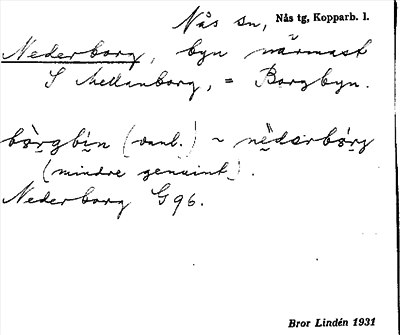 Nås sn, Nås tg, Kopparb. l.
Nederborg, byn närmast
S Mellanborg, = Borgbyn.
bòrgbín (vanl.) ~ nèderbórg
(mindre genuint).
Nederborg G96.
Bror Lindén 1931